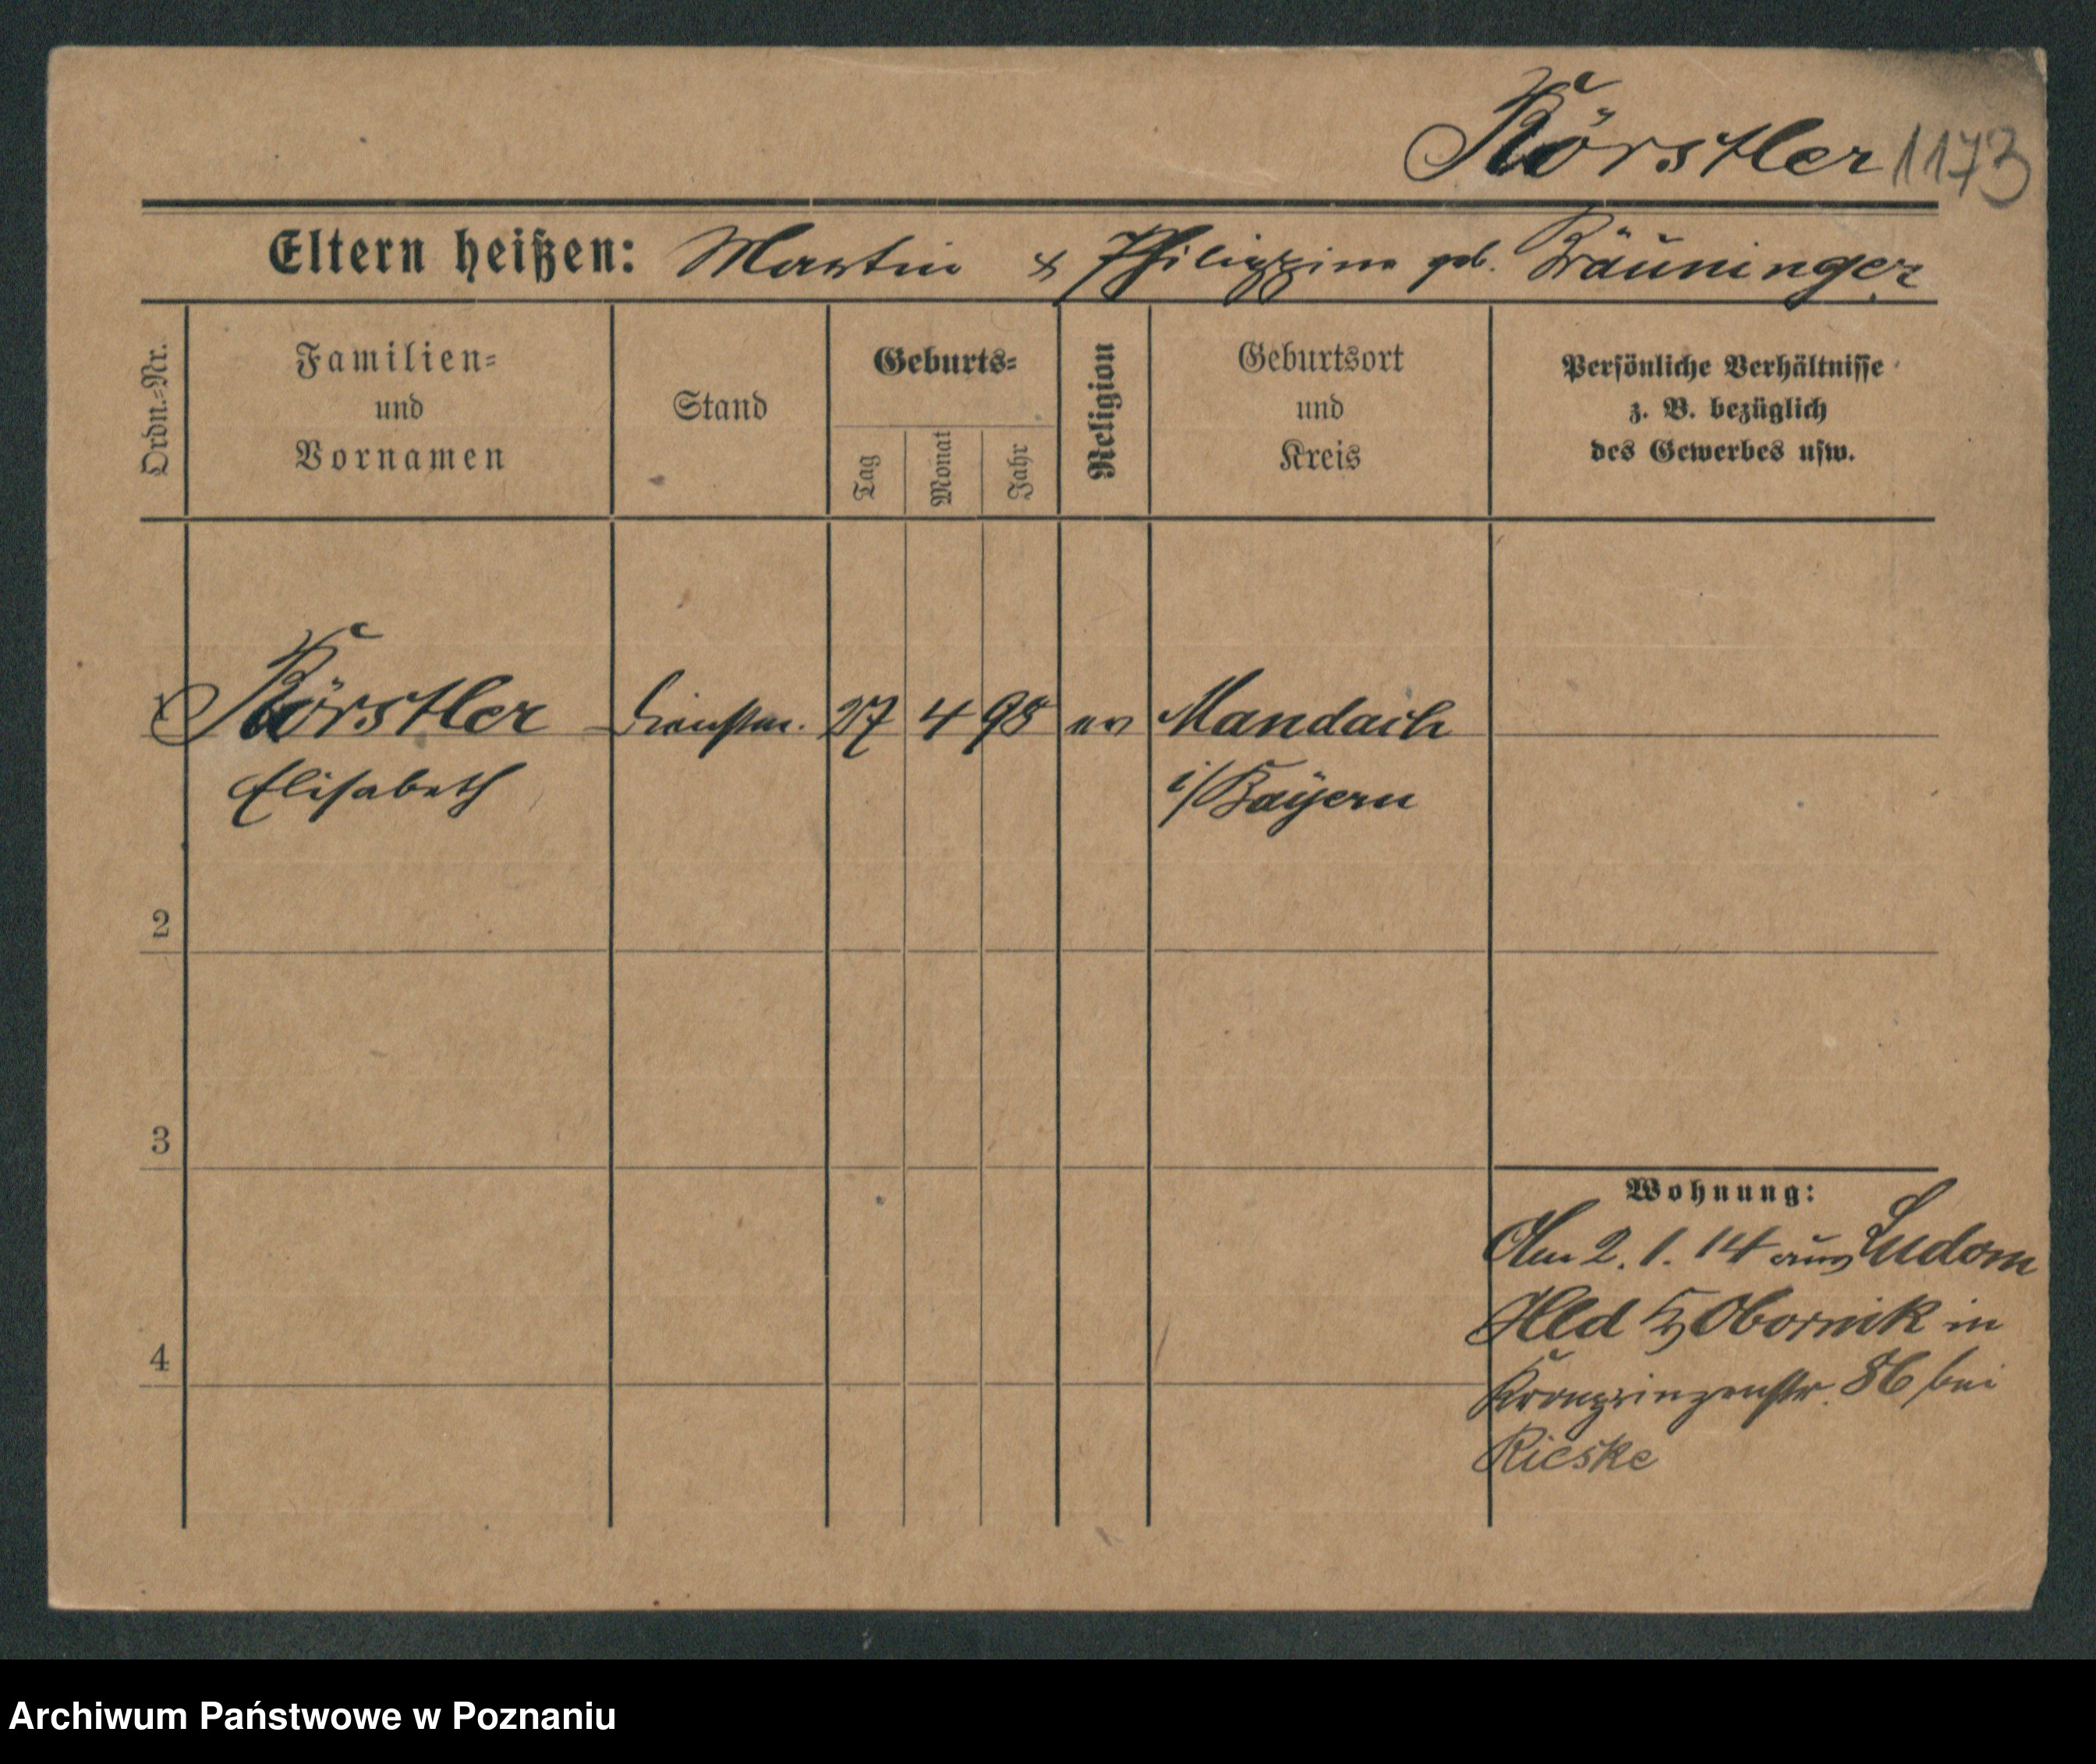 Körstler 1173
Eltern heißen: Martin & Philippine geb. Bräuninger
Ordn.-Nr.
Familien-
und
Vornamen
Stand
Geburts-
Tag
Monat
Jahr
Religion
Geburtsort
und
Kreis
Persönliche Verhältnisse
z. B. bezüglich
des Gewerbes usw.
1 Körstler Dienstm. 27 4 98 ev Mandach
Elisabeth i/Bayern
2
3
4
Wohnung:
Am 2. 1. 14 aus Ludom
Hld Obornik in
Kronprinzenstr. 86 bei
Rieske
Archiwum Państwowe w Poznaniu